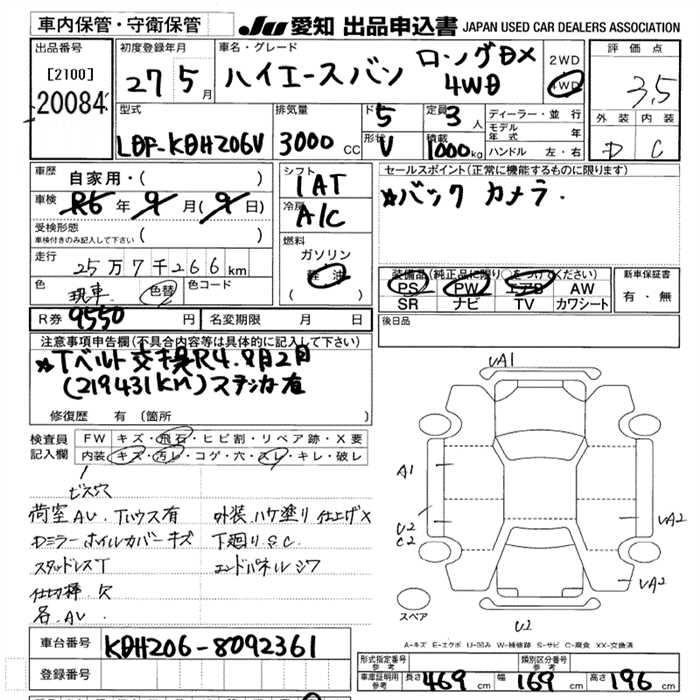 車内保管・守衛保管 JU 愛知 出品申込書 JAPAN USED CAR DEALERS ASSOCIATION
出品番号 初度登録年月 車名・グレード 評価点
[2100] 27 5月 ハイエースバン ロングDX 2WD
20084 4WD 4WD 3,5
型式 排気量 ド 5 定員 3人 ディーラー・並行 外装 内装
モデル年式 年
LDF-KDH206V 3000CC 形状 V 積載 1000kg ハンドル 左・右 D C
車歴 自家用・( ) シフト セールスポイント(正常に機能するものに限ります)
1AT ☆バック カメラ.
車検 R6年 9月(9日) 冷房
A/C
受検形態 ( )
車検付きのみ記入して下さい
燃料
走行 25万7千266km ガソリン
軽油 装備品(純正品に限り○をつけてください) 新車保証書
色 現車 色替 色コード ( ) PS PW エアB AW 有・無
SR ナビ TV カワシート
R券 9550円 名変期限 月 日 後日品
注意事項申告欄(不具合内容等は具体的に記入して下さい)
☆Tベルト交換R4.9月2日
(219431KM)ステッカー有
修復歴 有(箇所
VA1
検査員 FW キズ・飛石・ヒビ割・リペア跡・X要
記入欄 内装 キズ・汚レ・コゲ・穴・スレ・キレ・破レ
ビス穴
A1
荷室AU.Tハウス有 外装ハケ塗り仕上げX
U2 VA2
C2
Dミラー ホイルカバーキズ 下廻りS.C.
スタッドレスT エンドパネルシワ
VA2
仕切棒.欠
名.AU.
スペア
U2
A-キズ E-エクボ U-凹み W-補修跡 S-サビ C-腐食 XX-交換済
車台番号 KDH206-8092361
形式指定番号 参考 類別区分番号 参考
登録番号 車庫証明用 参考 長さ 469cm 幅 169cm 高さ 196cm